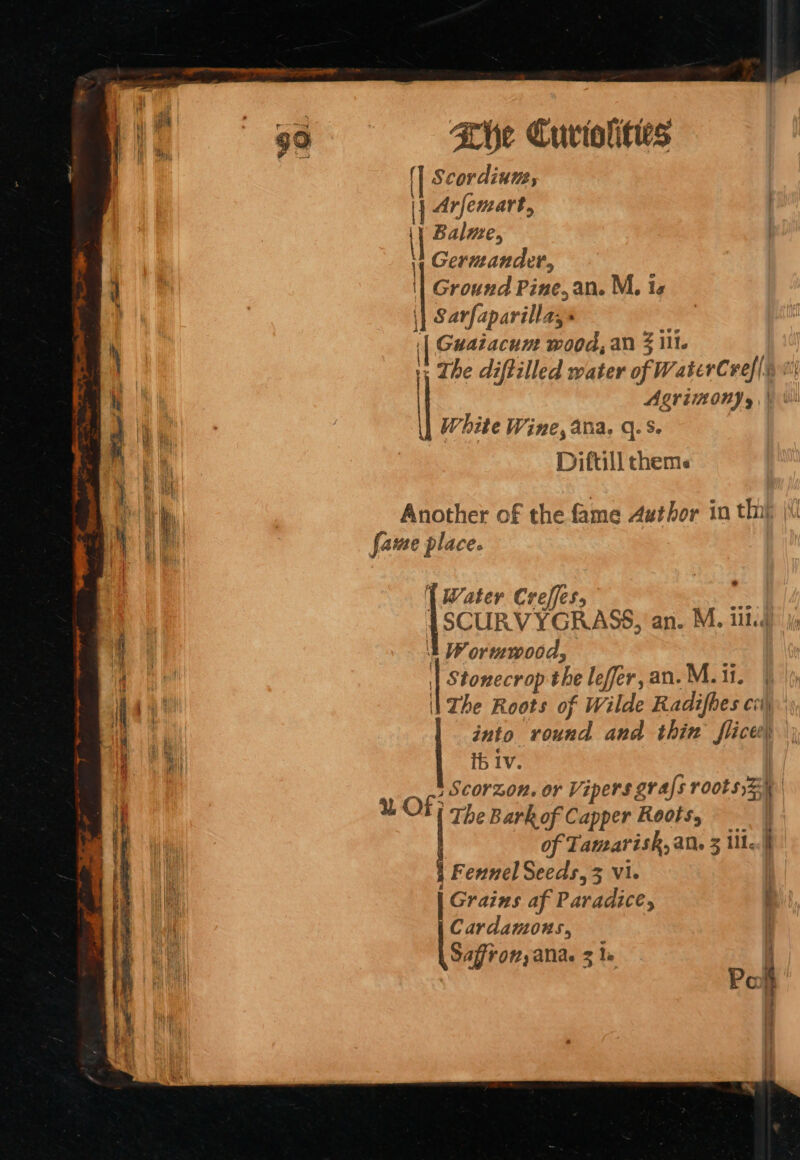 90 The Curiosities
Scordium,
Arſemart,
Balme,
Germander,
Ground Pine, an. M. i.
Sarſaparilla,
Guaiacum wood, an ℥ iii.
The diſtilled water of WaterCreſſ
Agrimony,
White Wine, ana. q.s.
Diſtill them.
Another of the ſame Author in
ſame place.
Water Creſſes,
SCURVYGRASS, an. M. iii.
Wormwood,
Stonecrop the leſſer, an. M. ii.
The Roots of Wilde Radiſhes
into round and thin ſlices
℔ iv.
Scorzon. or Vipers graſs roots,
℞ Of The Bark of Capper Roots,
of Tamarisk, an. ʒ iii.
Fennel Seeds, ʒ vi.
Grains af Paradice,
Cardamons,
Saffron, ana. ʒ i.